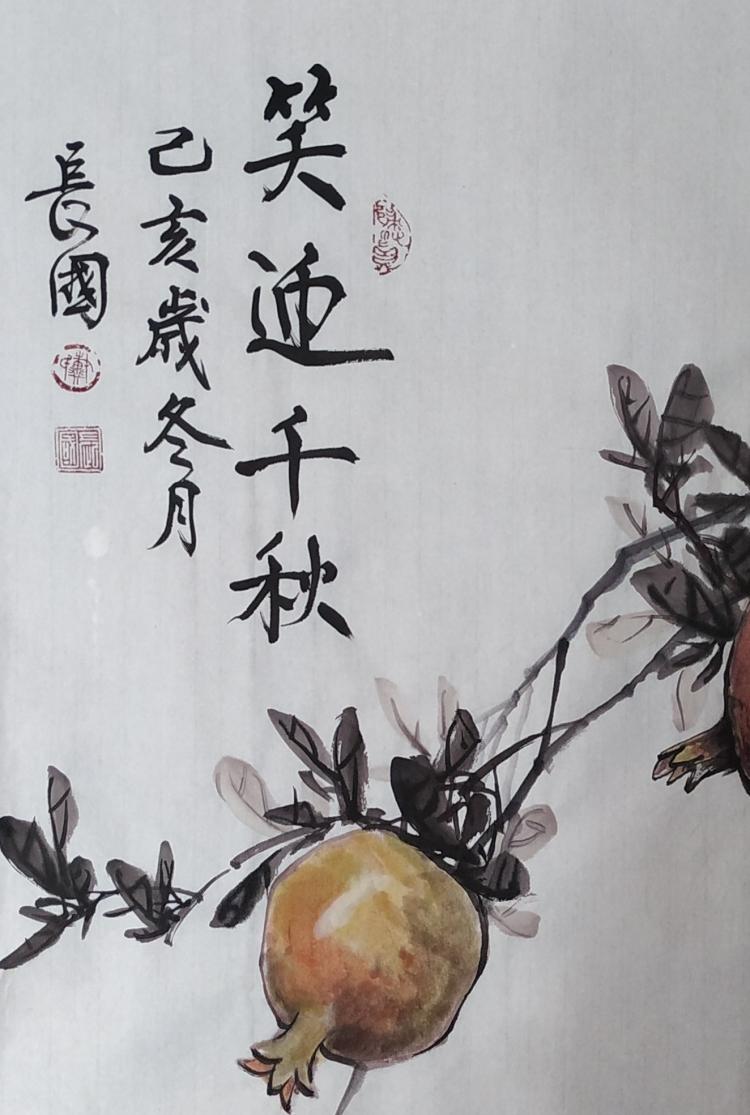 笑迎千秋
己亥歲冬月
長國